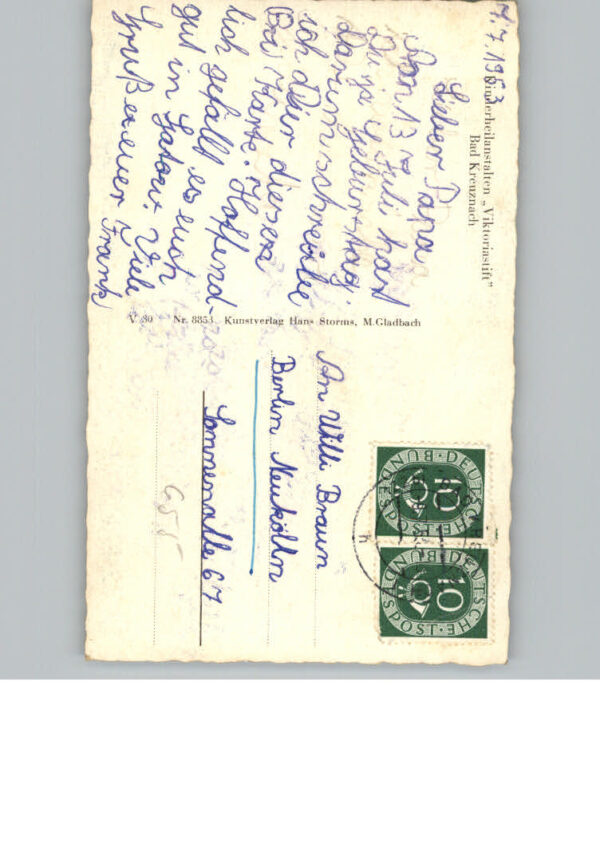 7.7.1953
Kinderheilanstalten „Viktoriastift"
Bad Kreuznach
Lieber Papa
Am 13 Juli hast
Du ja Geburtstag,
darum schreibe
ich dir diese
Karte. Hoffend-
lich gefällt es euch
gut in Gatow. Viele
Grüße euer Frank
V 30 Nr. 8853 Kunstverlag Hans Storms, M.Gladbach
An Willi Braun
Berlin Neukölln
Sonnenalle 67
65
DEUTSCHE BUNDESPOST 10
DEUTSCHE BUNDESPOST 10